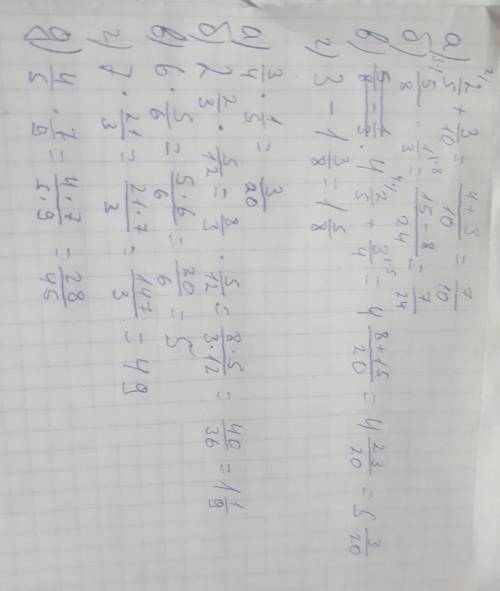 а) 2/5 + 3/10 = (4+3)/10 = 7/10
б) 5/8 - 1/3 = (15-8)/24 = 7/24
в) 4 2/5 + 3/4 = 4 (8+15)/20 = 4 23/20 = 5 3/20
г) 3 - 1 3/8 = 1 5/8
а) 3/4 · 1/5 = 3/20
б) 2 2/3 · 5/12 = 8/3 · 5/12 = (8·5)/(3·12) = 40/36 = 1 1/9
в) 6 · 5/6 = (5·6)/6 = 30/6 = 5
г) 7 · 21/3 = (21·7)/3 = 147/3 = 49
д) 4/5 · 7/9 = (4·7)/(5·9) = 28/45